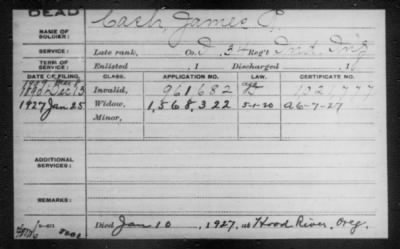 DEAD
NAME OF SOLDIER: Cash, James C.
SERVICE: Late rank, Co. D, 3 Reg't Ind. Inf.
TERM OF SERVICE: Enlisted , 1 Discharged , 1
DATE OF FILING. CLASS. APPLICATION NO. LAW. CERTIFICATE NO.
Invalid, 961,682 1021,777
1927 Jan 25 Widow, 1,568,322 5-1-20 A6-7-27
Minor,
ADDITIONAL SERVICES:
REMARKS:
Died Jan 10, 1927, at Hood River, Oreg.